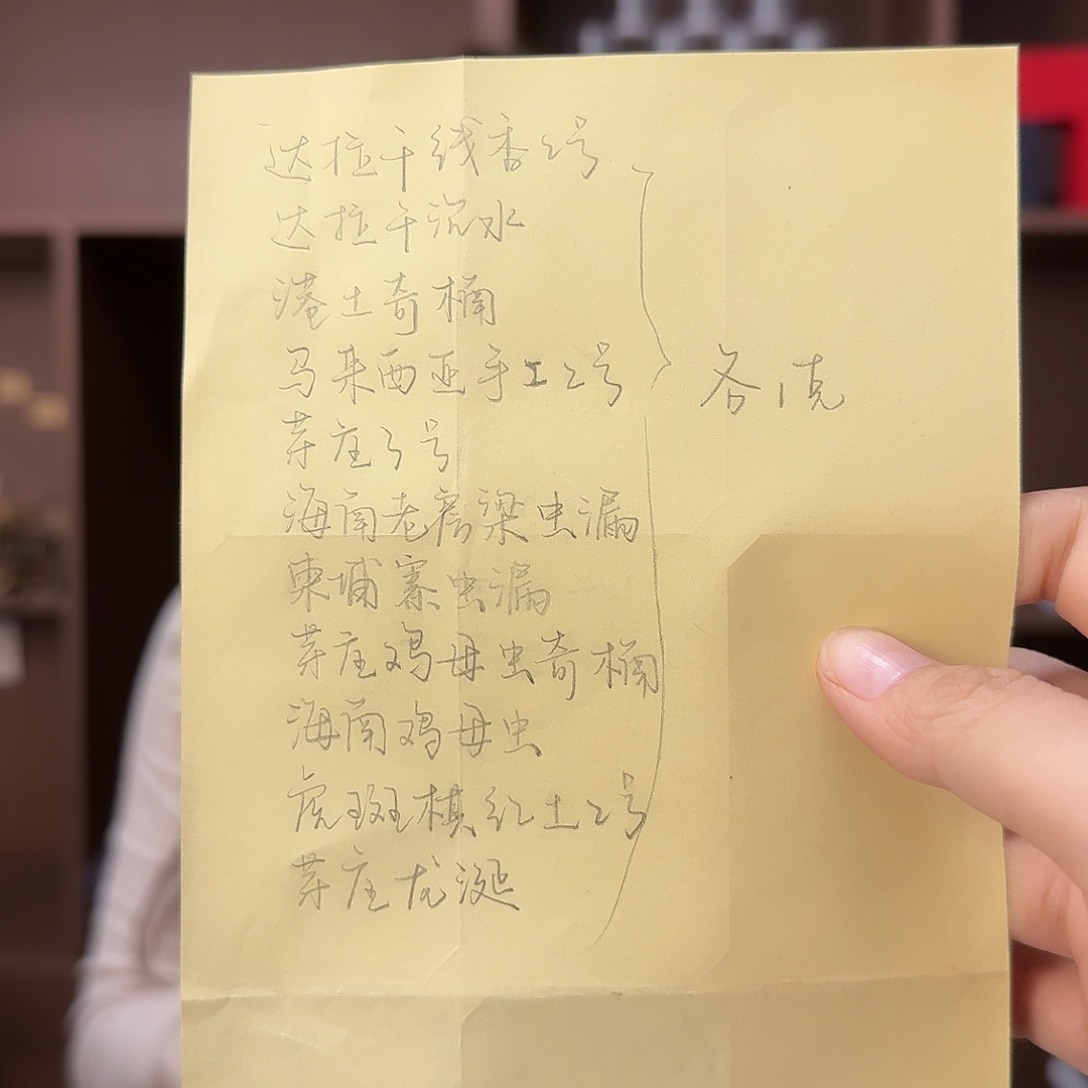 达拉干线香2号
达拉干沉水
港土奇楠
马来西亚手工2号
芽庄3号
海南老房梁虫漏
柬埔寨虫漏
芽庄鸡母虫奇楠
海南鸡母虫
虎斑棋红土2号
芽庄龙涎
各1克